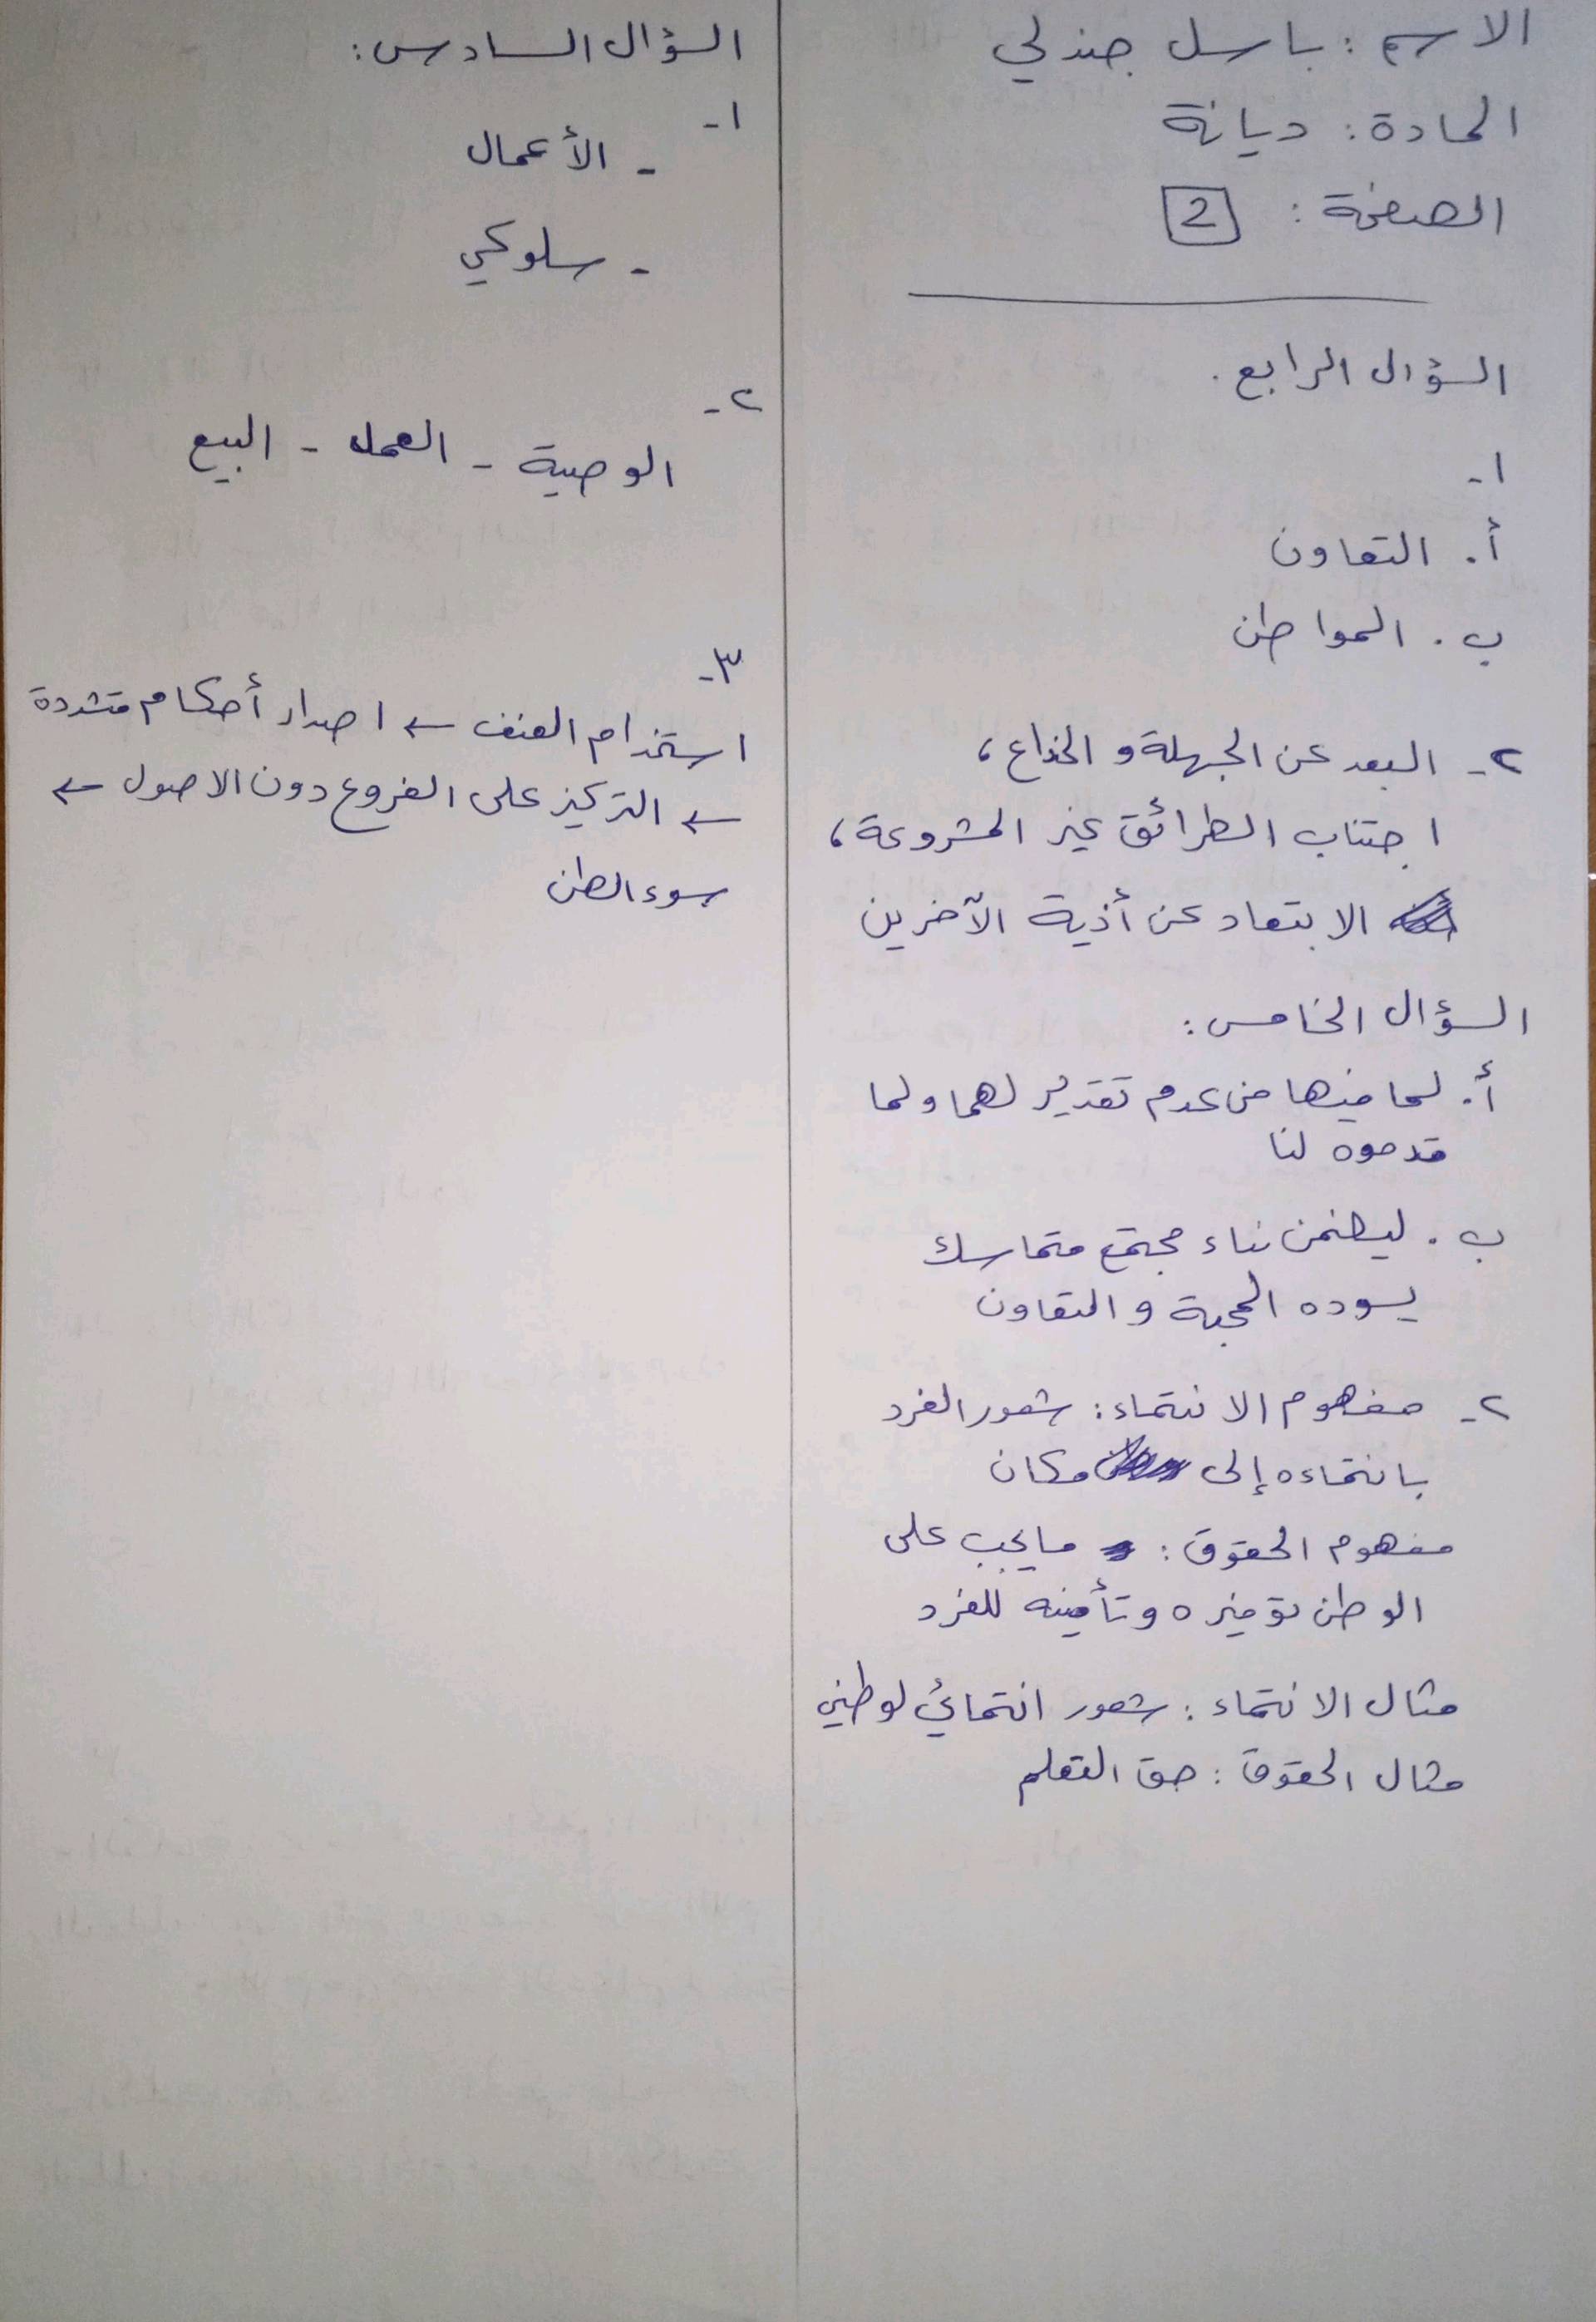 الاسم: باسل جندلي
المادة: ديانة
الصفحة: 2
السؤال الرابع.
١-
أ. التعاون
ب. المواطن
٢- البعد عن الجهلة و الخداع،
اجتناب الطرائق غير المشروعة،
الابتعاد عن أذية الآخرين
السؤال الخامس:
أ. لما فيها من عدم تقدير لهما ولما
قدموه لنا
ب. ليضمن بناء مجتمع متماسك
يسوده المحبة و التعاون
٢- مفهوم الانتماء: شعور الفرد
بانتماءه إلى مكان
مفهوم الحقوق: ما يجب على
الوطن توفيره و تأمينه للفرد
مثال الانتماء: شعور انتمائي لوطني
مثال الحقوق: حق التعلم
السؤال السادس:
١-
- الأعمال
- سلوكي
٢-
الوصية - العمل - البيع
٣-
استخدام العنف ← اصدار أحكام متشددة
← التركيز على الفروع دون الاصول ←
سوء الظن